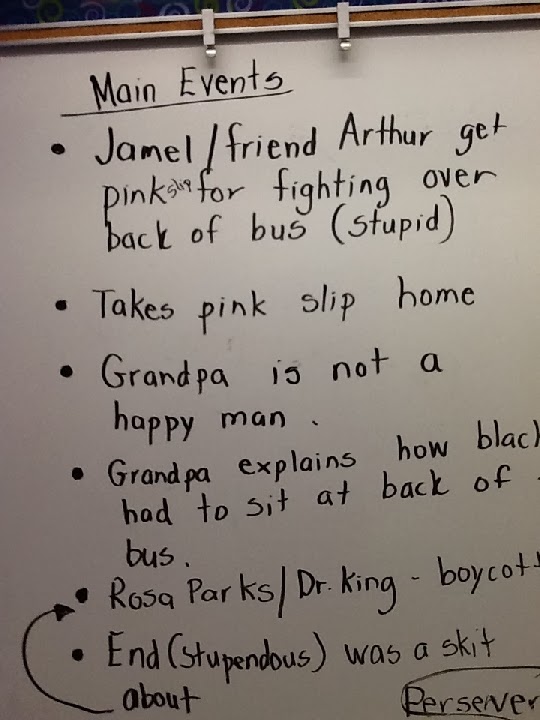 Main Events
• Jamel/friend Arthur get
pink slip for fighting over
back of bus (stupid)
• Takes pink slip home
• Grandpa is not a
happy man.
• Grandpa explains how black
had to sit at back of
bus.
• Rosa Parks/Dr. King - boycott
• End (stupendous) was a skit
about
Persever